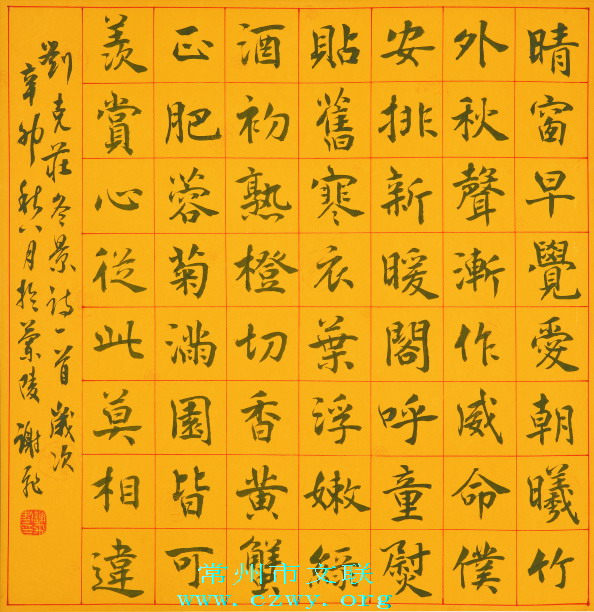 晴窗早覺愛朝曦竹
外秋聲漸作威命僕
安排新暖閣呼童熨
貼舊寒衣葉浮嫩綠
酒初熟橙切香黄蟹
正肥蓉菊滿園皆可
羨賞心從此莫相違
劉克莊冬景詩一首歲次
辛卯秋八月於蘭陵謝飛
常州市文联
www.czwy.org